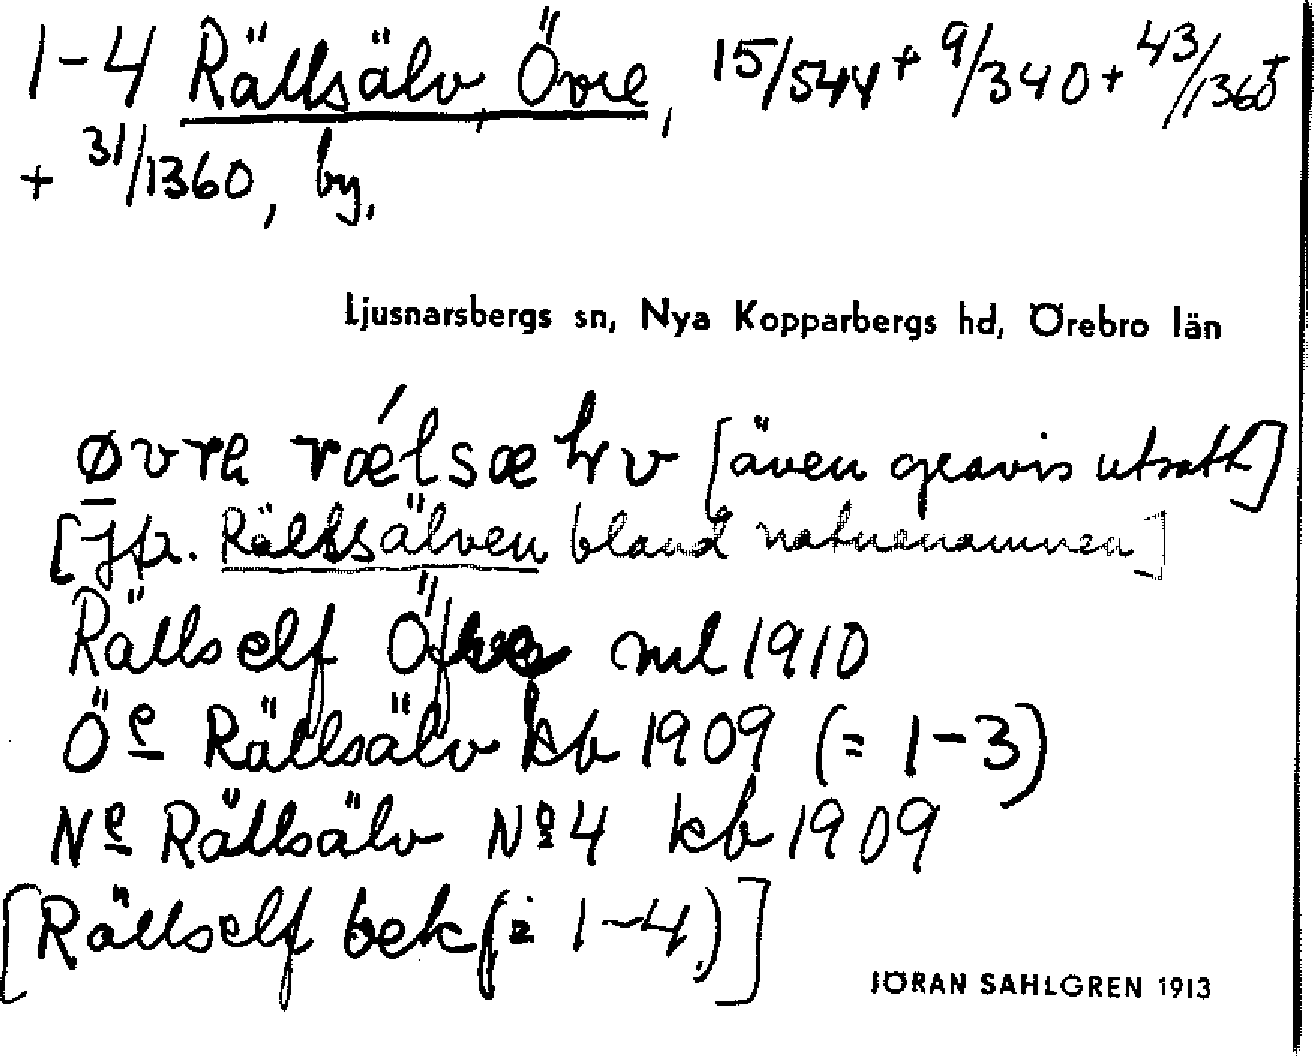 1-4 Rällsälv, Övre, 15/544 + 9/340 + 43/1360
+ 31/1360, by,
Ljusnarsbergs sn, Nya Kopparbergs hd, Örebro län
[även gravis utsatt]
[jfr. Rällsälven bland naturnamnen]
Rällself Öfre ml 1910
Öe Rällsälv kb 1909 (= 1-3)
Ne Rällsälv No 4 kb 1909
[Rällself bek (= 1-4)]
JÖRAN SAHLGREN 1913